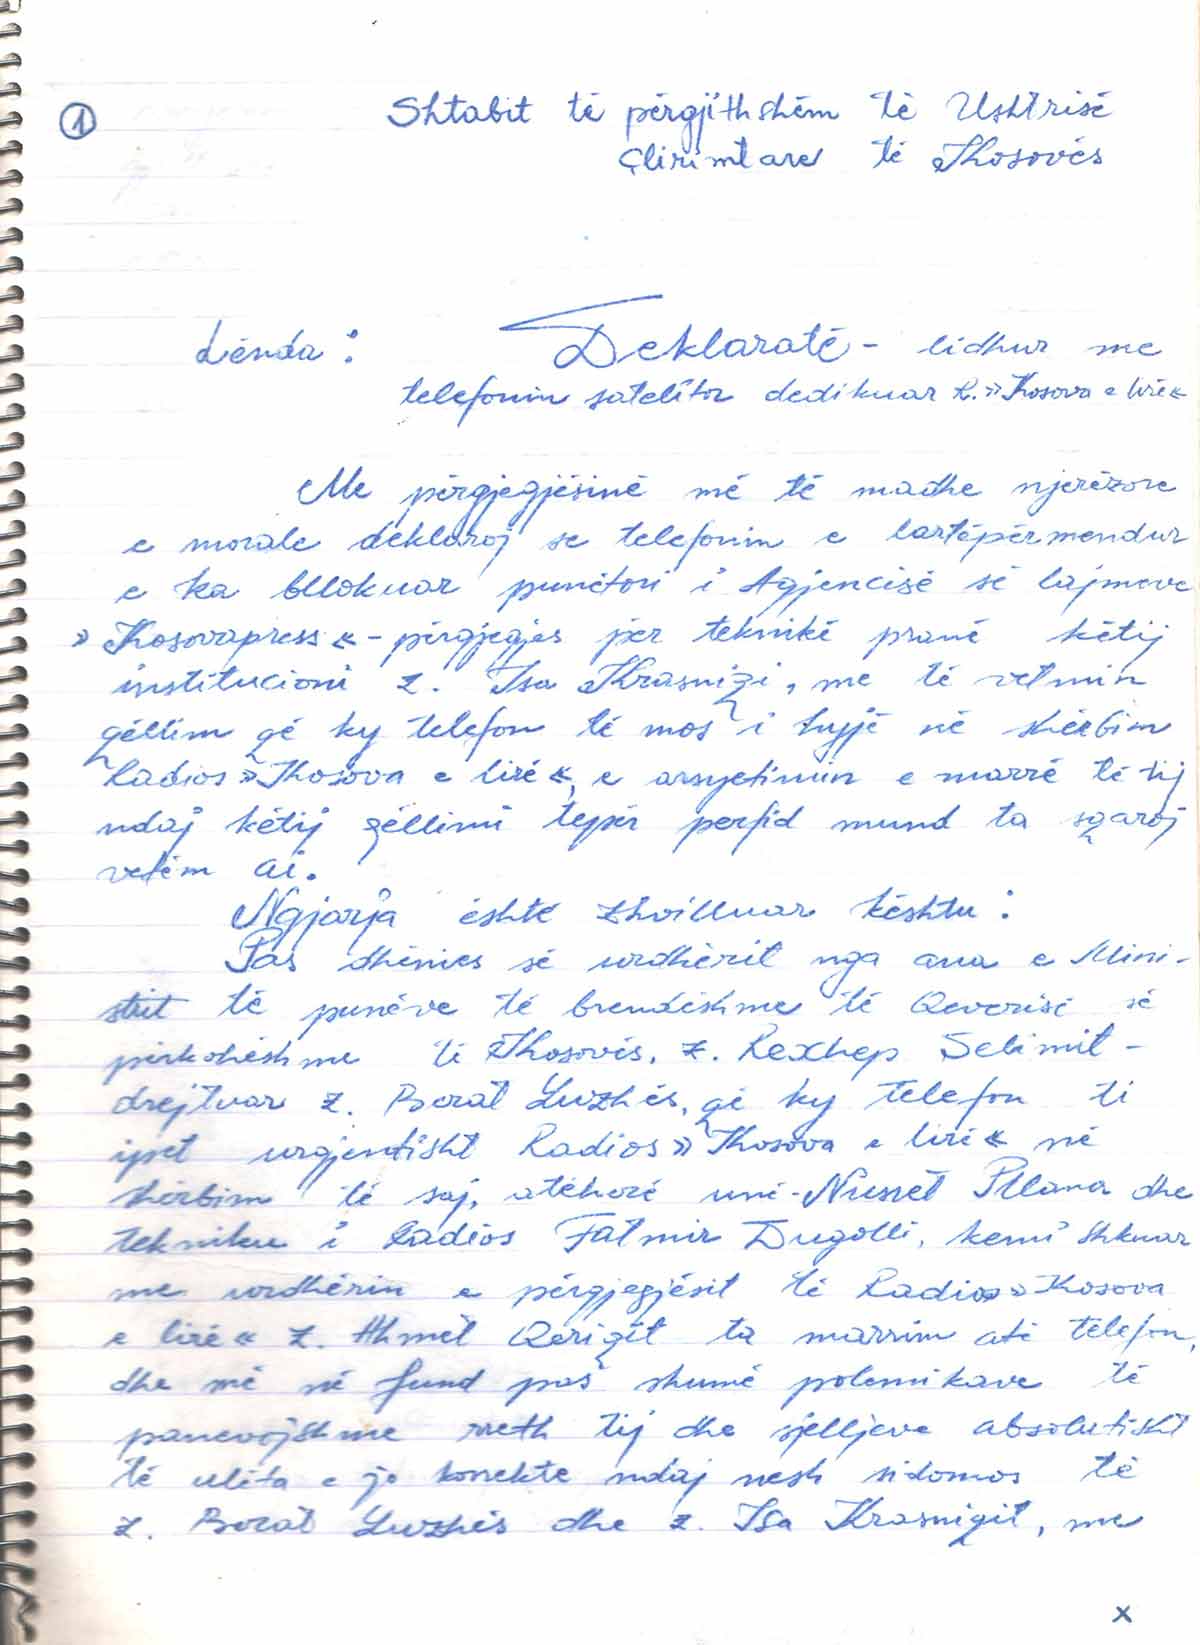 1
Shtabit të përgjithshëm të Ushtrisë
Çlirimtare të Kosovës
Lënda : Deklaratë - lidhur me
telefonin satelitor dedikuar R. »Kosova e lirë«
Me përgjegjësinë më të madhe njerëzore
e morale deklaroj se telefonin e lartëpërmendur
e ka bllokuar punëtori i Agjencisë së lajmeve
»Kosovapress« - përgjegjës për teknikë pranë këtij
institucioni z. Isa Krasniqi, me të vetmin
qëllim që ky telefon të mos i hyjë në shërbim
Radios »Kosova e lirë«, e arsyetimin e marrë të tij
ndaj këtij qëllimi tepër perfid mund ta sqaroj
vetëm ai.
Ngjarja është zhvilluar kështu :
Pas dhënies së urdhërit nga ana e Mini-
strit të punëve të brendëshme të Qeverisë së
përkohëshme të Kosovës, z. Rexhep Selimit -
drejtuar z. Berat Luzhës, që ky telefon ti
ipet urgjentisht Radios »Kosova e lirë« në
shërbim të saj, atëherë unë - Nusret Pllana dhe
tekniku i Radios Fatmir Dugolli, kemi shkuar
me urdhërin e përgjegjësit të Radios »Kosova
e lirë« z. Ahmet Qeriqit ta marrim atë telefon,
dhe më në fund pas shumë polemikave të
panevojshme rreth tij dhe sjelljeve absolutisht
të ulëta e jo korrekte ndaj nesh sidomos të
z. Berat Luzhës dhe z. Isa Krasniqit, me
x